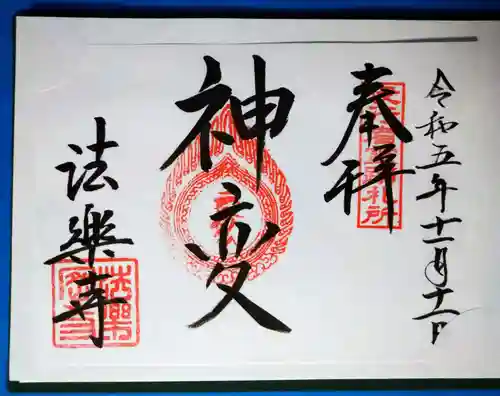 令和五年十一月十一日
奉拝
神変
法樂寺